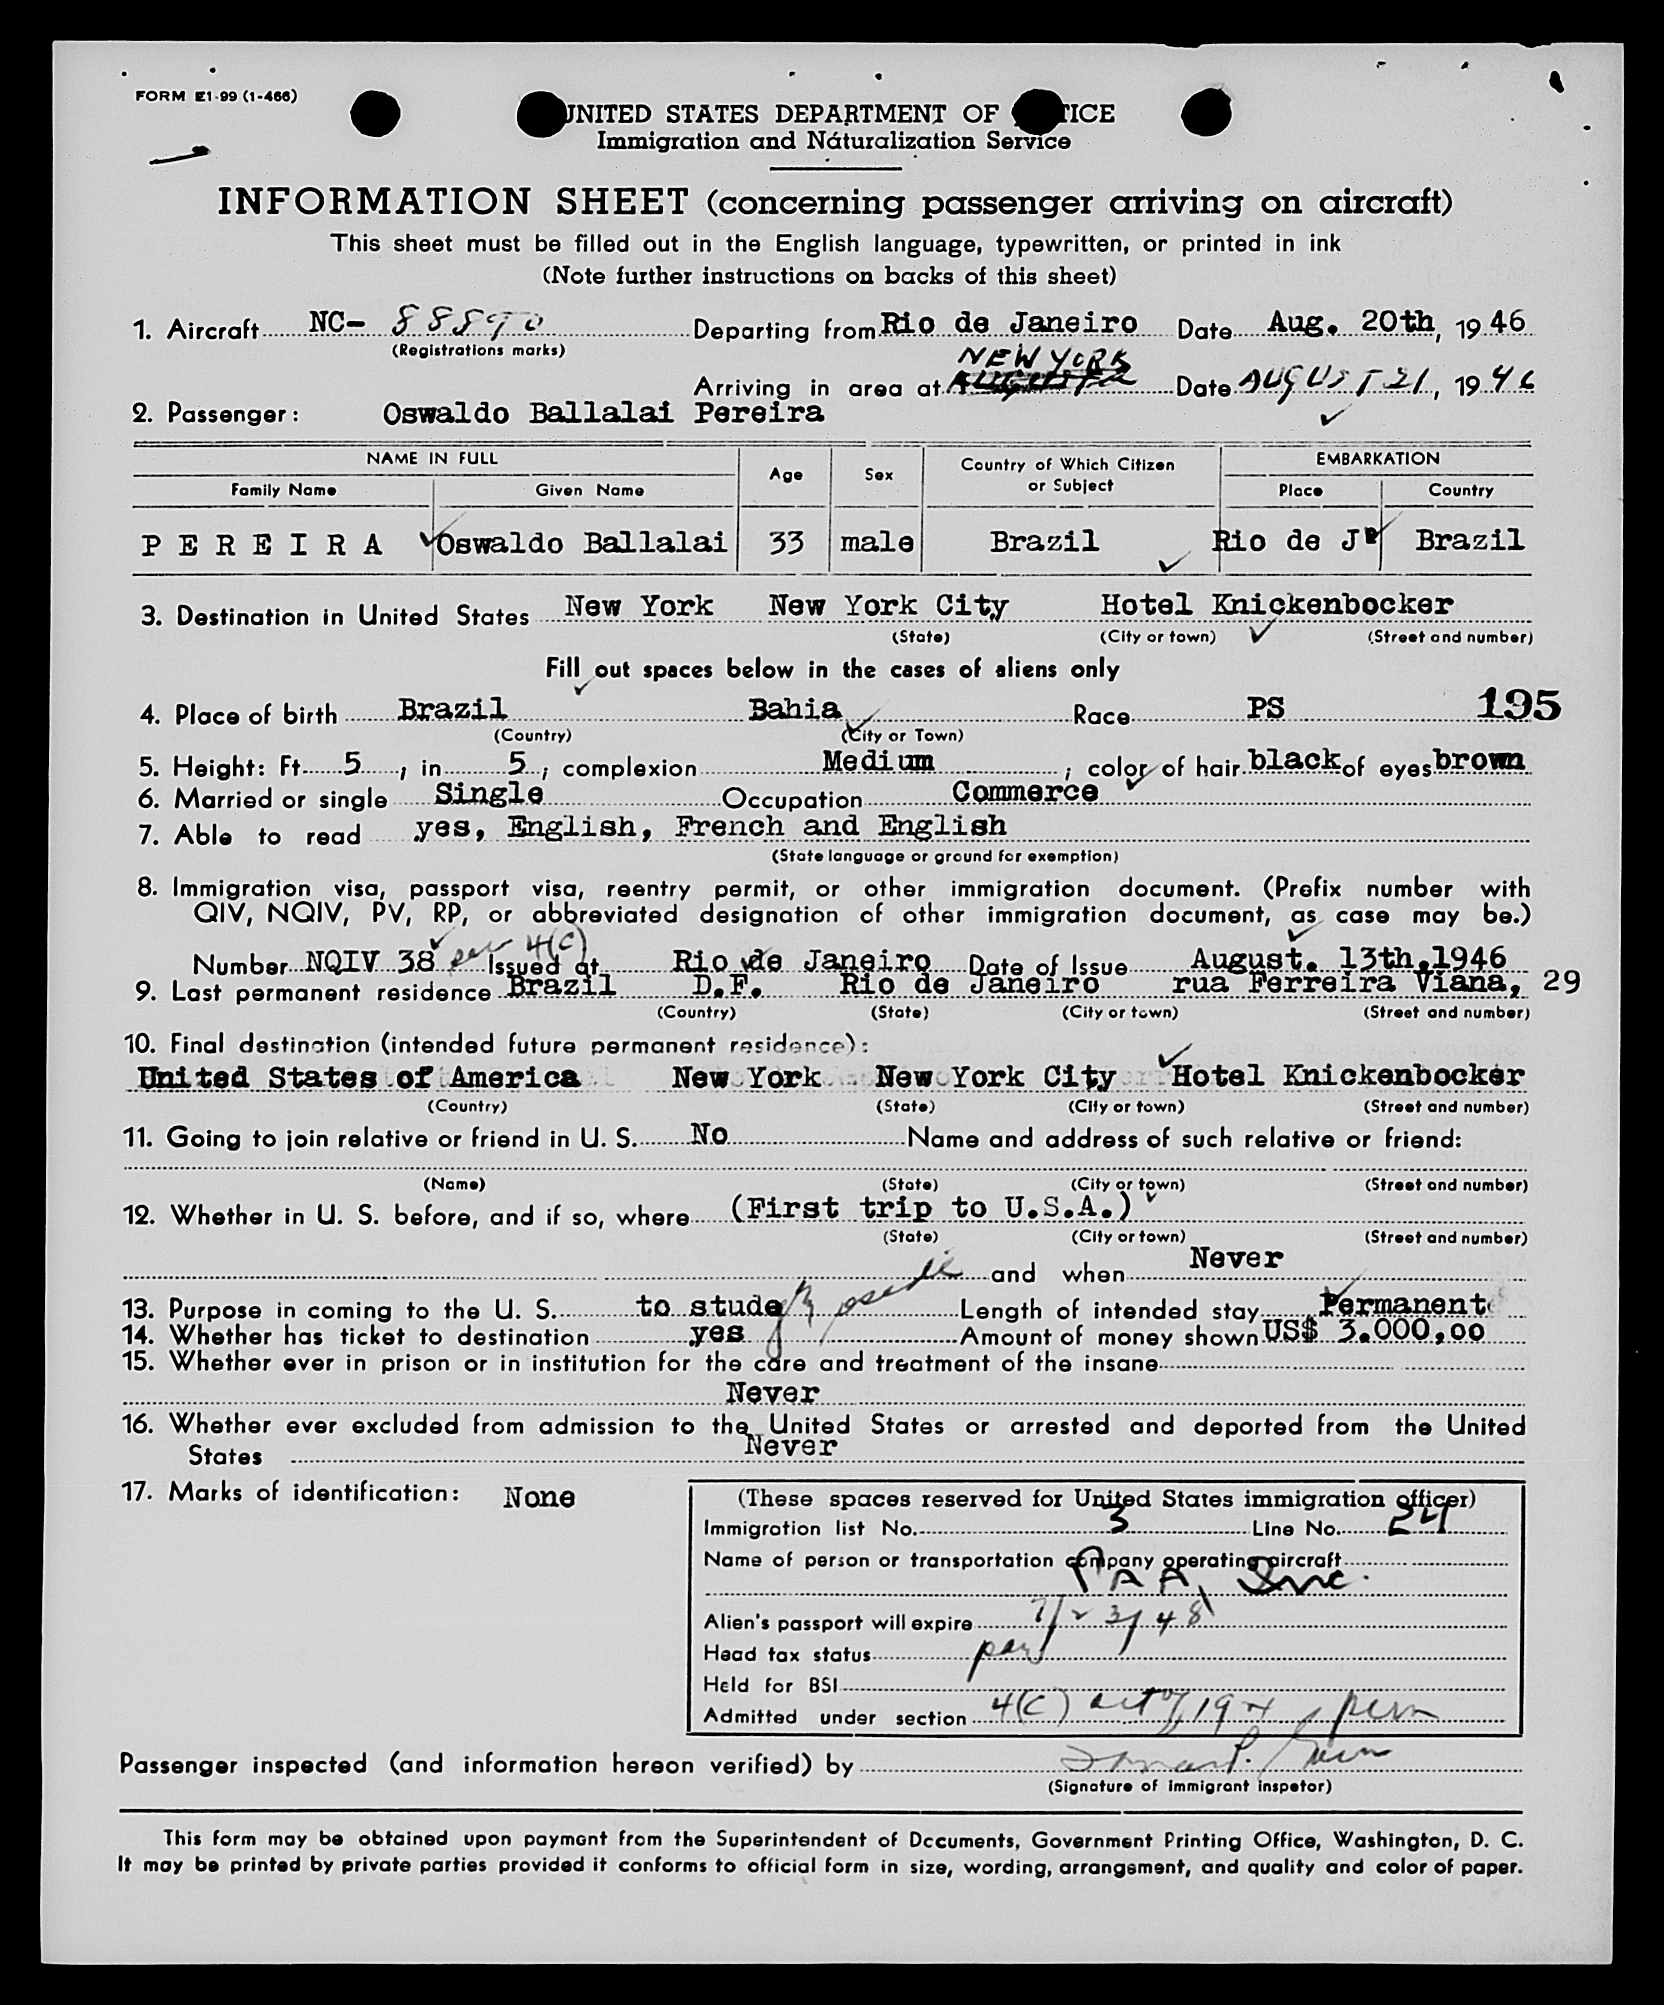 FORM E1-99 (1-466)
UNITED STATES DEPARTMENT OF TICE
Immigration and Naturalization Service
INFORMATION SHEET (concerning passenger arriving on aircraft)
This sheet must be filled out in the English language, typewritten, or printed in ink
(Note further instructions on backs of this sheet)
1. Aircraft NC- 88890 Departing from Rio de Janeiro Date Aug. 20th, 19 46
(Registrations marks)
NEW YORK
Arriving in area at Augusta Date AUGUST 21, 19 46
2. Passenger: Oswaldo Ballalai Pereira
NAME IN FULL Age Sex Country of Which Citizen or Subject EMBARKATION
Family Name Given Name Place Country
PEREIRA Oswaldo Ballalai 33 male Brazil Rio de Jº Brazil
3. Destination in United States New York New York City Hotel Knickenbocker
(State) (City or town) (Street and number)
Fill out spaces below in the cases of aliens only
4. Place of birth Brazil Bahia Race PS 195
(Country) (City or Town)
5. Height: Ft. 5, in. 5; complexion Medium; color of hair black of eyes brown
6. Married or single Single Occupation Commerce
7. Able to read yes, English, French and English
(State language or ground for exemption)
8. Immigration visa, passport visa, reentry permit, or other immigration document. (Prefix number with
QIV, NQIV, PV, RP, or abbreviated designation of other immigration document, as case may be.)
Number NQIV 38 per 4(c) Issued at Rio de Janeiro Date of Issue August. 13th,1946
9. Last permanent residence Brazil D.F. Rio de Janeiro rua Ferreira Viana, 29
(Country) (State) (City or town) (Street and number)
10. Final destination (intended future permanent residence):
United States of America New York New York City Hotel Knickenbocker
(Country) (State) (City or town) (Street and number)
11. Going to join relative or friend in U. S. No Name and address of such relative or friend:
(Name) (State) (City or town) (Street and number)
12. Whether in U. S. before, and if so, where (First trip to U.S.A.)
(State) (City or town) (Street and number)
and when Never
13. Purpose in coming to the U. S. to stude Length of intended stay Permanent
14. Whether has ticket to destination yes Amount of money shown US$ 3.000,00
15. Whether ever in prison or in institution for the care and treatment of the insane
Never
16. Whether ever excluded from admission to the United States or arrested and deported from the United
States Never
17. Marks of identification: None
(These spaces reserved for United States immigration officer)
Immigration list No. 3 Line No. 24
Name of person or transportation company operating aircraft
PAA, Inc.
Alien's passport will expire 7/23/48
Head tax status pay
Held for BSI
Admitted under section 4(C) act of 1924 perm
Passenger inspected (and information hereon verified) by
(Signature of immigrant inspetor)
This form may be obtained upon payment from the Superintendent of Documents, Government Printing Office, Washington, D. C.
It may be printed by private parties provided it conforms to official form in size, wording, arrangement, and quality and color of paper.